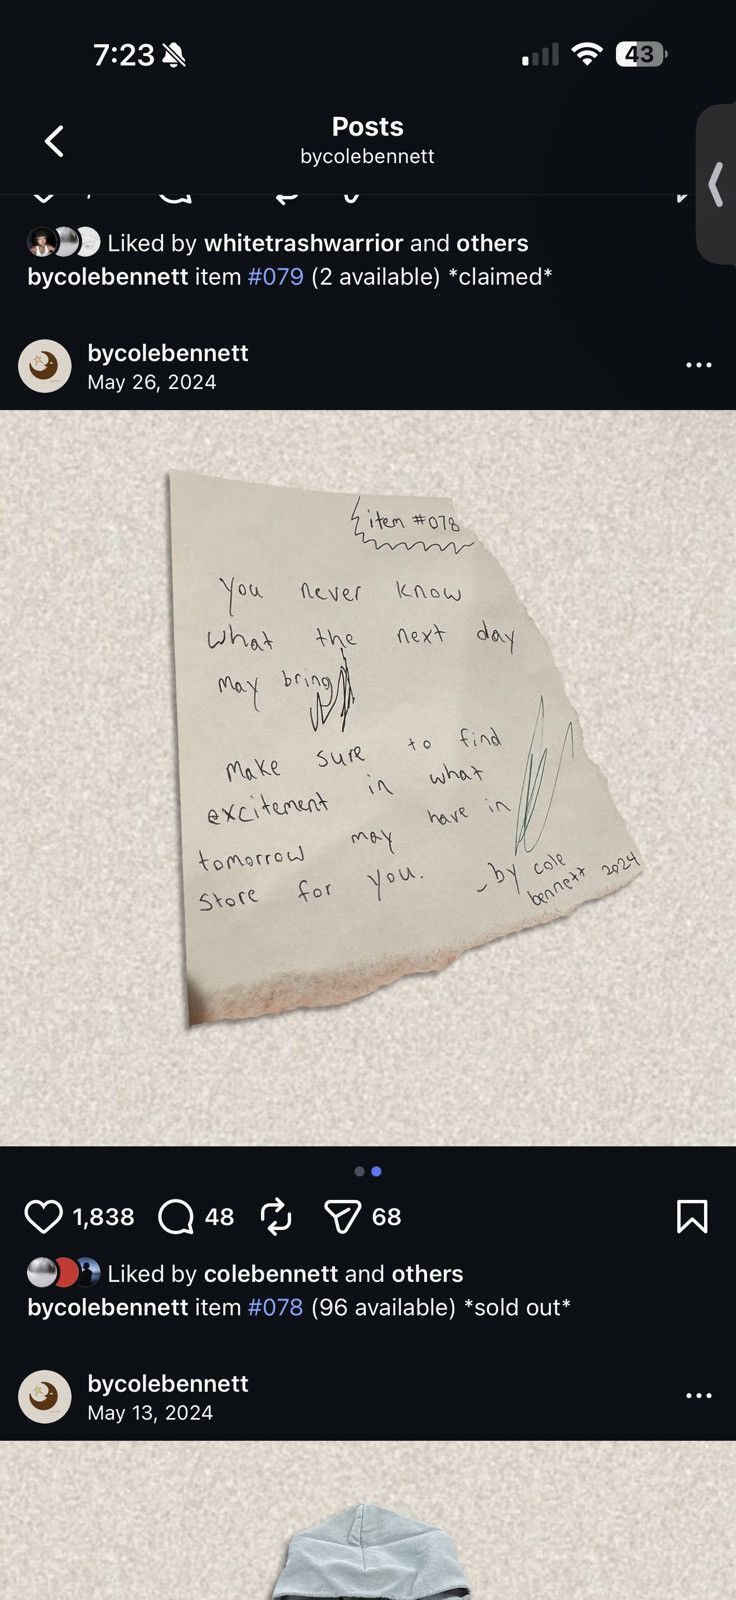 7:23
43
Posts
bycolebennett
Liked by whitetrashwarrior and others
bycolebennett item #079 (2 available) *claimed*
bycolebennett
May 26, 2024
item #078
You never know
what the next day
may bring
Make sure to find
excitement in what
tomorrow may have in
store for you.
by cole
bennett 2024
1,838
48
68
Liked by colebennett and others
bycolebennett item #078 (96 available) *sold out*
bycolebennett
May 13, 2024